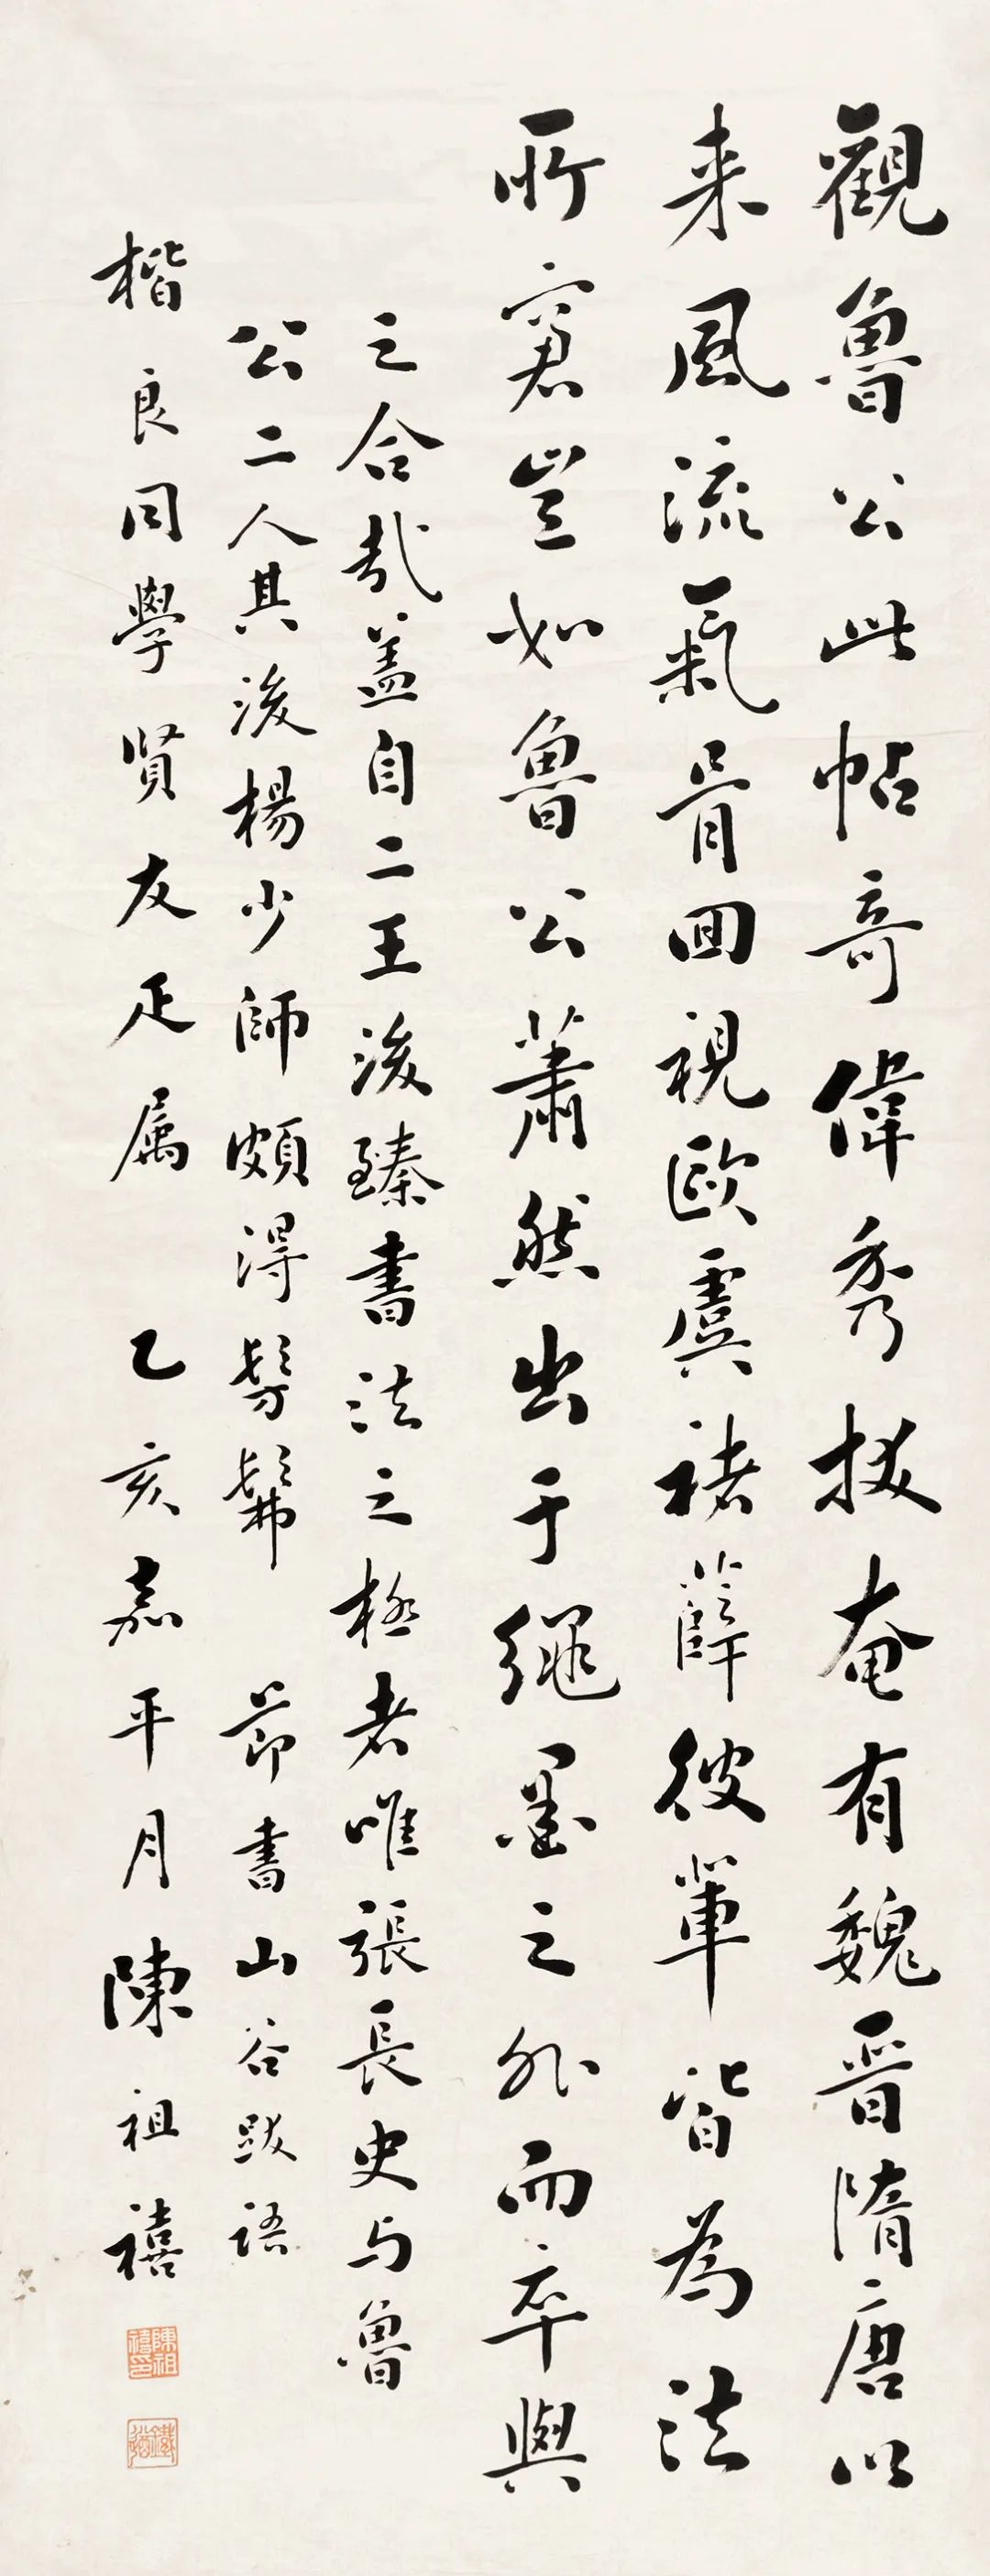 觀魯公此帖奇偉秀拔奄有魏晉隋唐以
来風流氣骨回視歐虞褚薛徐輩皆為法
所窘豈如魯公蕭然出于繩墨之外而卒與
之合哉蓋自二王後臻書法之極者唯張長史与魯
公二人其後楊少師頗得髣髴 節書山谷跋語
楷良同學賢友疋属 乙亥嘉平月陳祖禧
陳祖禧印